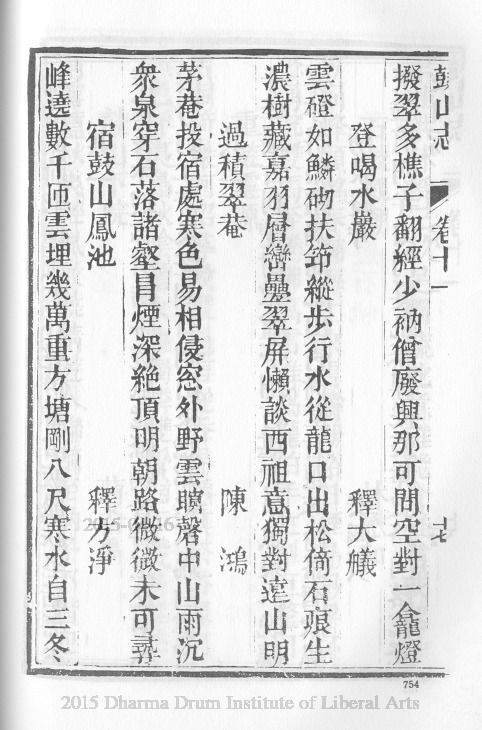 鼓山志 卷十一 十七
撥翠多樵子翻經少衲僧廢興那可問空對一龕燈
登喝水巖 釋大艤
雲磴如鱗砌扶筇縱步行水從龍口出松倚石痕生
濃樹藏嘉羽層巒疊翠屏懶談西祖意獨對遠山明
過積翠菴 陳鴻
茅菴投宿處寒色易相侵窓外野雲曠磬中山雨沉
衆泉穿石落諸壑冐煙深絶頂明朝路微微未可尋
宿鼓山鳳池 釋方淨
峰遶數千匝雲埋幾萬重方塘剛八尺寒水自三冬
754
2015 Dharma Drum Institute of Liberal Arts